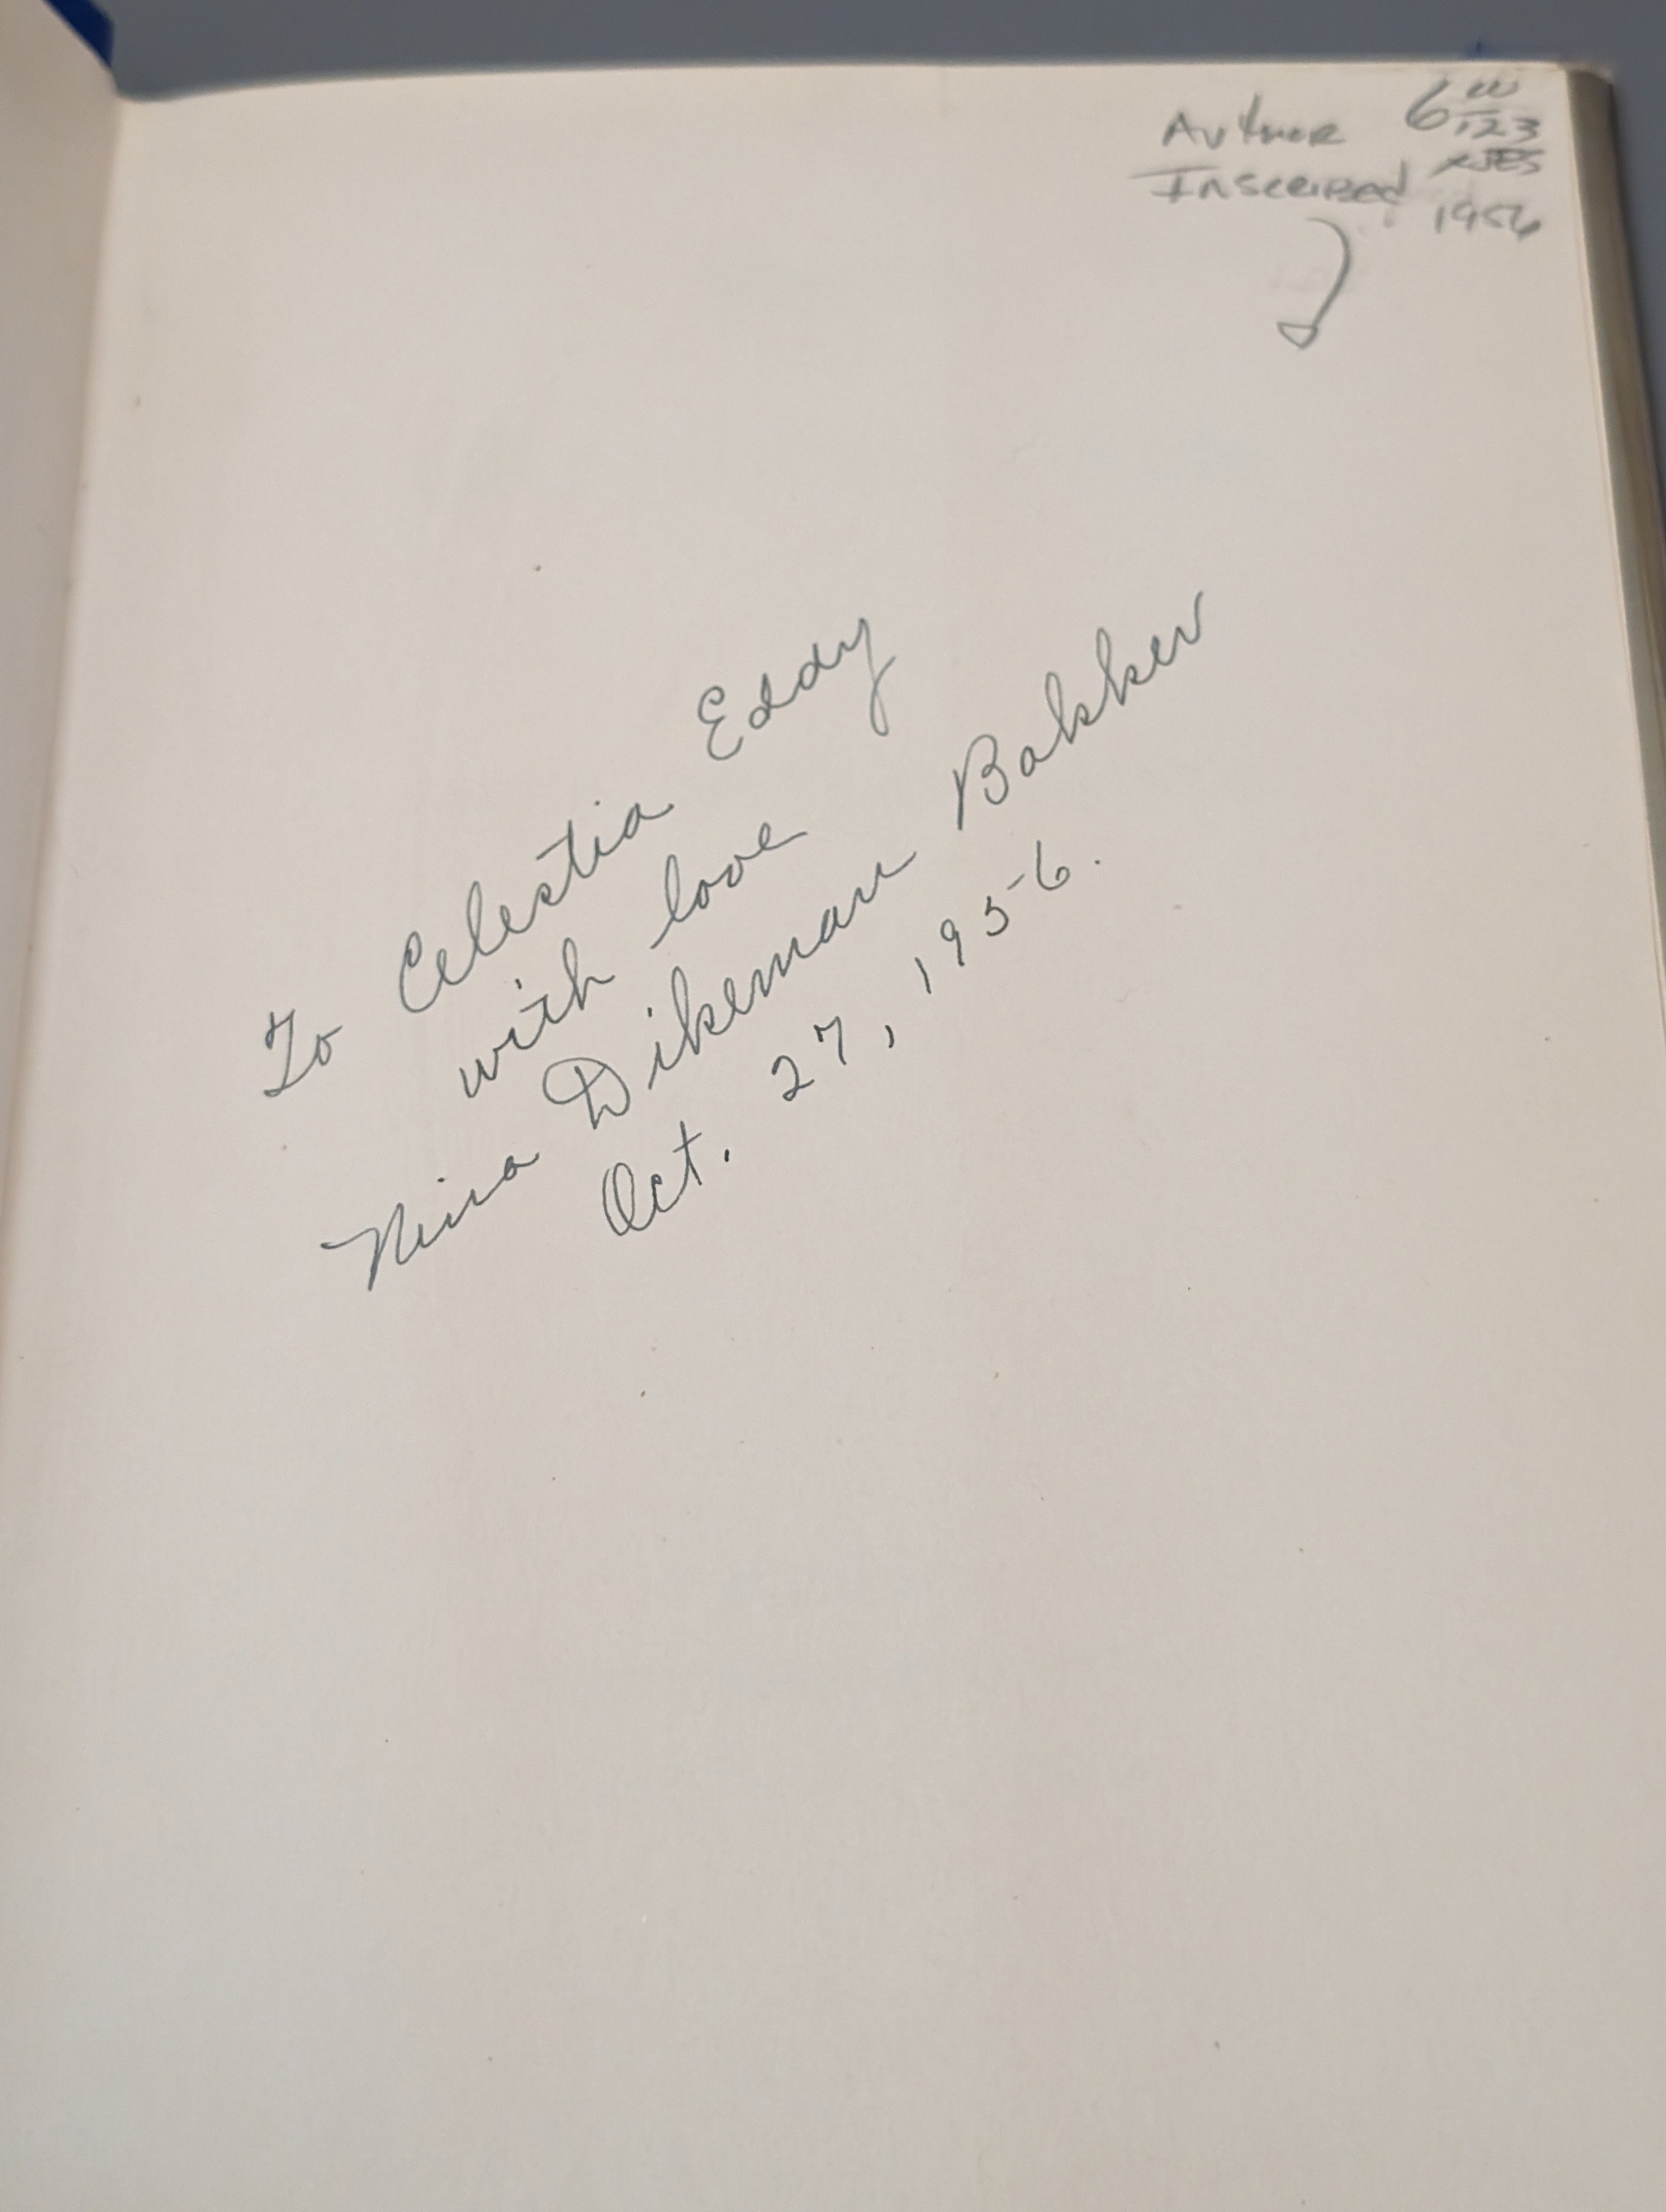 Author 6
Inscribed 1956
To Celestia Eddy
with love
Nina Dikeman Bakker
Oct. 27, 1956.